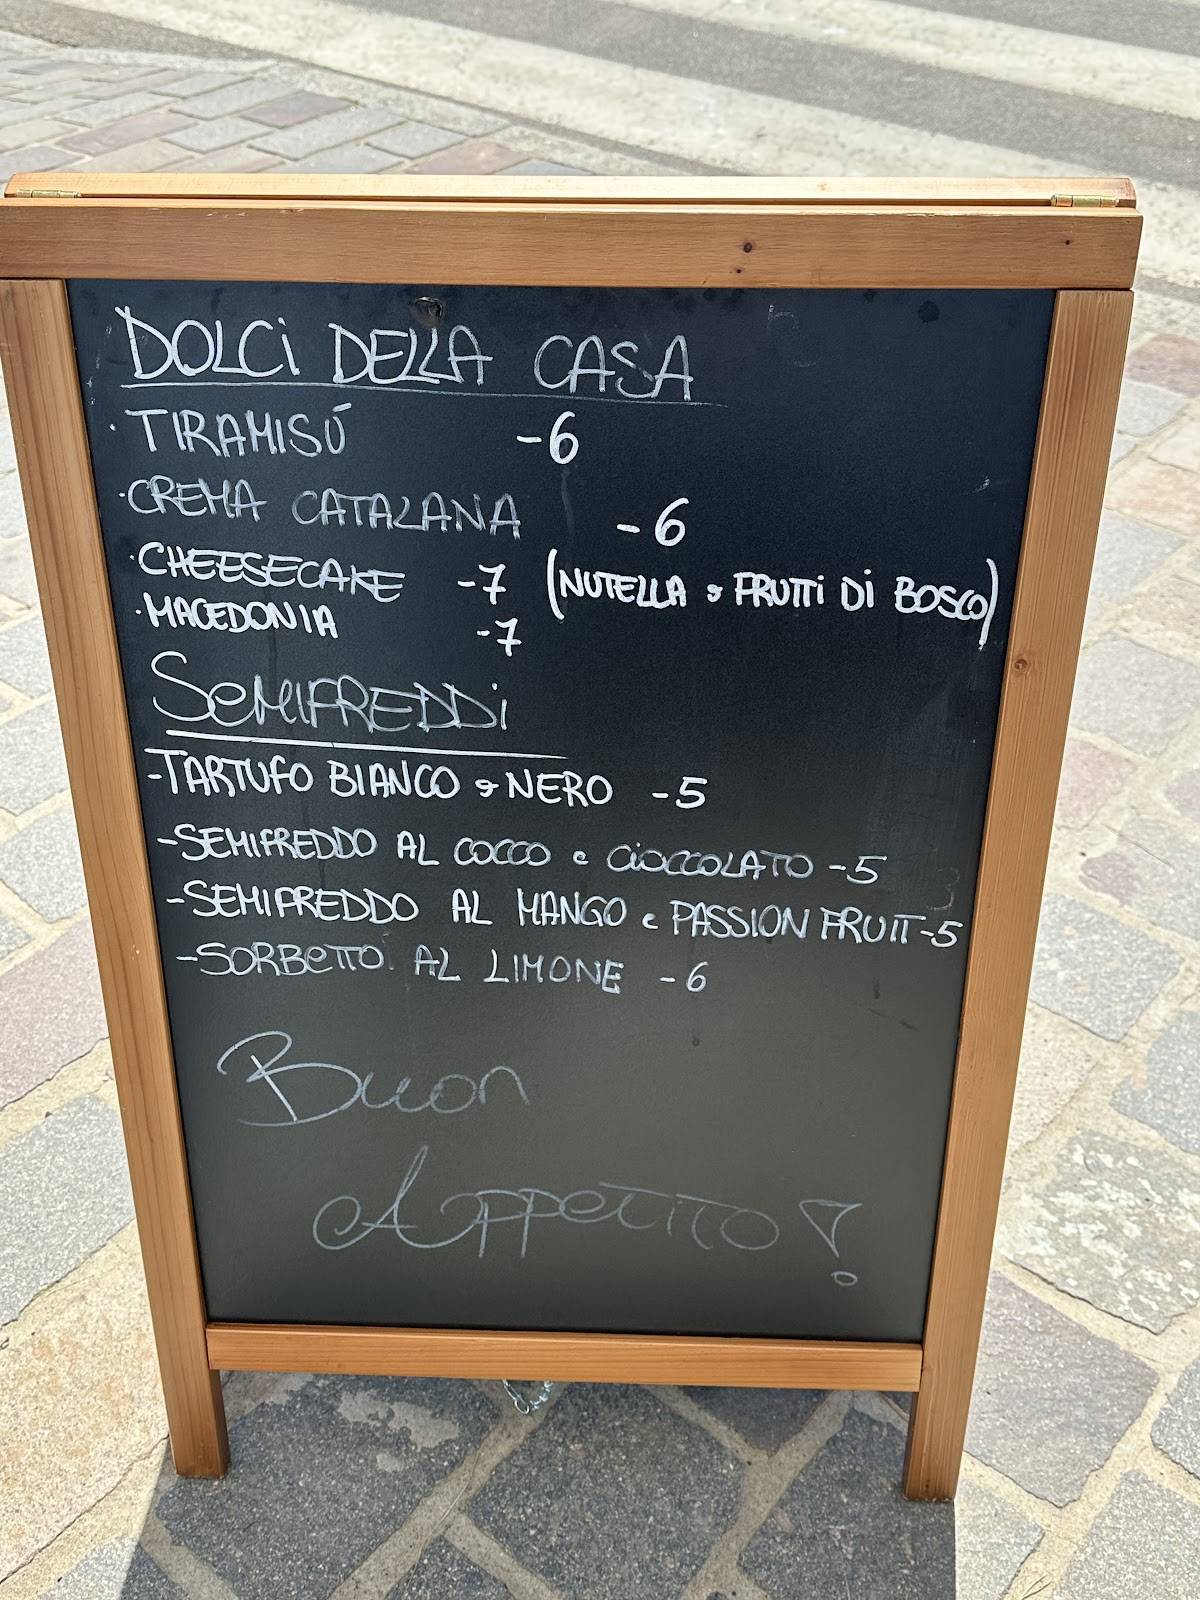 DOLCi DELLA CASA
· TIRAMISÚ -6
· CREMA CATALANA -6
· CHEESECAKE -7 (NUTELLA o FRUTTi Di BOSCO)
· MACEDONIA -7
SeMIFREDDi
-TARTUFO BIANCO o NERO -5
-SEMIFREDDO AL COCCO e CiOCCOLATO -5
-SEMIFREDDO AL MANGO e PASSION FRUIT -5
-SORBeTTO AL LIMONE -6
Buon
Appetito!